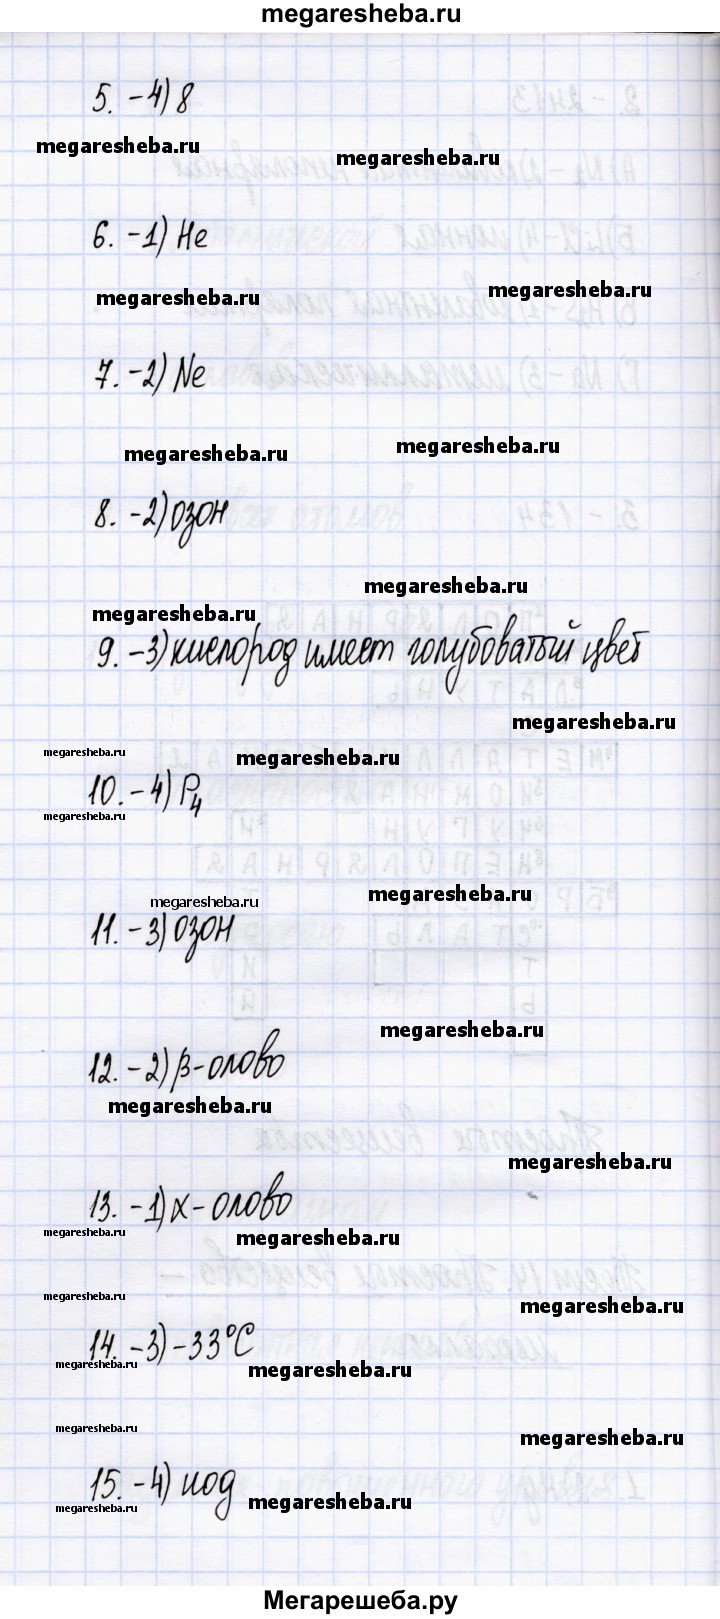 megaresheba.ru
5. -4) 8
megaresheba.ru
megaresheba.ru
6. -1) He
megaresheba.ru
megaresheba.ru
7. -2) Ne
megaresheba.ru
megaresheba.ru
8. -2) озон
megaresheba.ru
megaresheba.ru
9. -3) кислород имеет голубоватый цвет
megaresheba.ru
megaresheba.ru
megaresheba.ru
10. -4) P4
megaresheba.ru
megaresheba.ru
megaresheba.ru
11. -3) озон
megaresheba.ru
12. -2) β-олово
megaresheba.ru
megaresheba.ru
13. -1) α-олово
megaresheba.ru
megaresheba.ru
megaresheba.ru
megaresheba.ru
14. -3) -33°C
megaresheba.ru
megaresheba.ru
megaresheba.ru
megaresheba.ru
15. -4) иод
megaresheba.ru
megaresheba.ru
Мегарешеба.ру